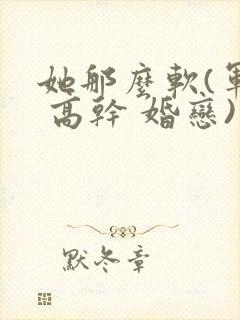 她那麼軟(軍
高幹 婚戀)
默冬章